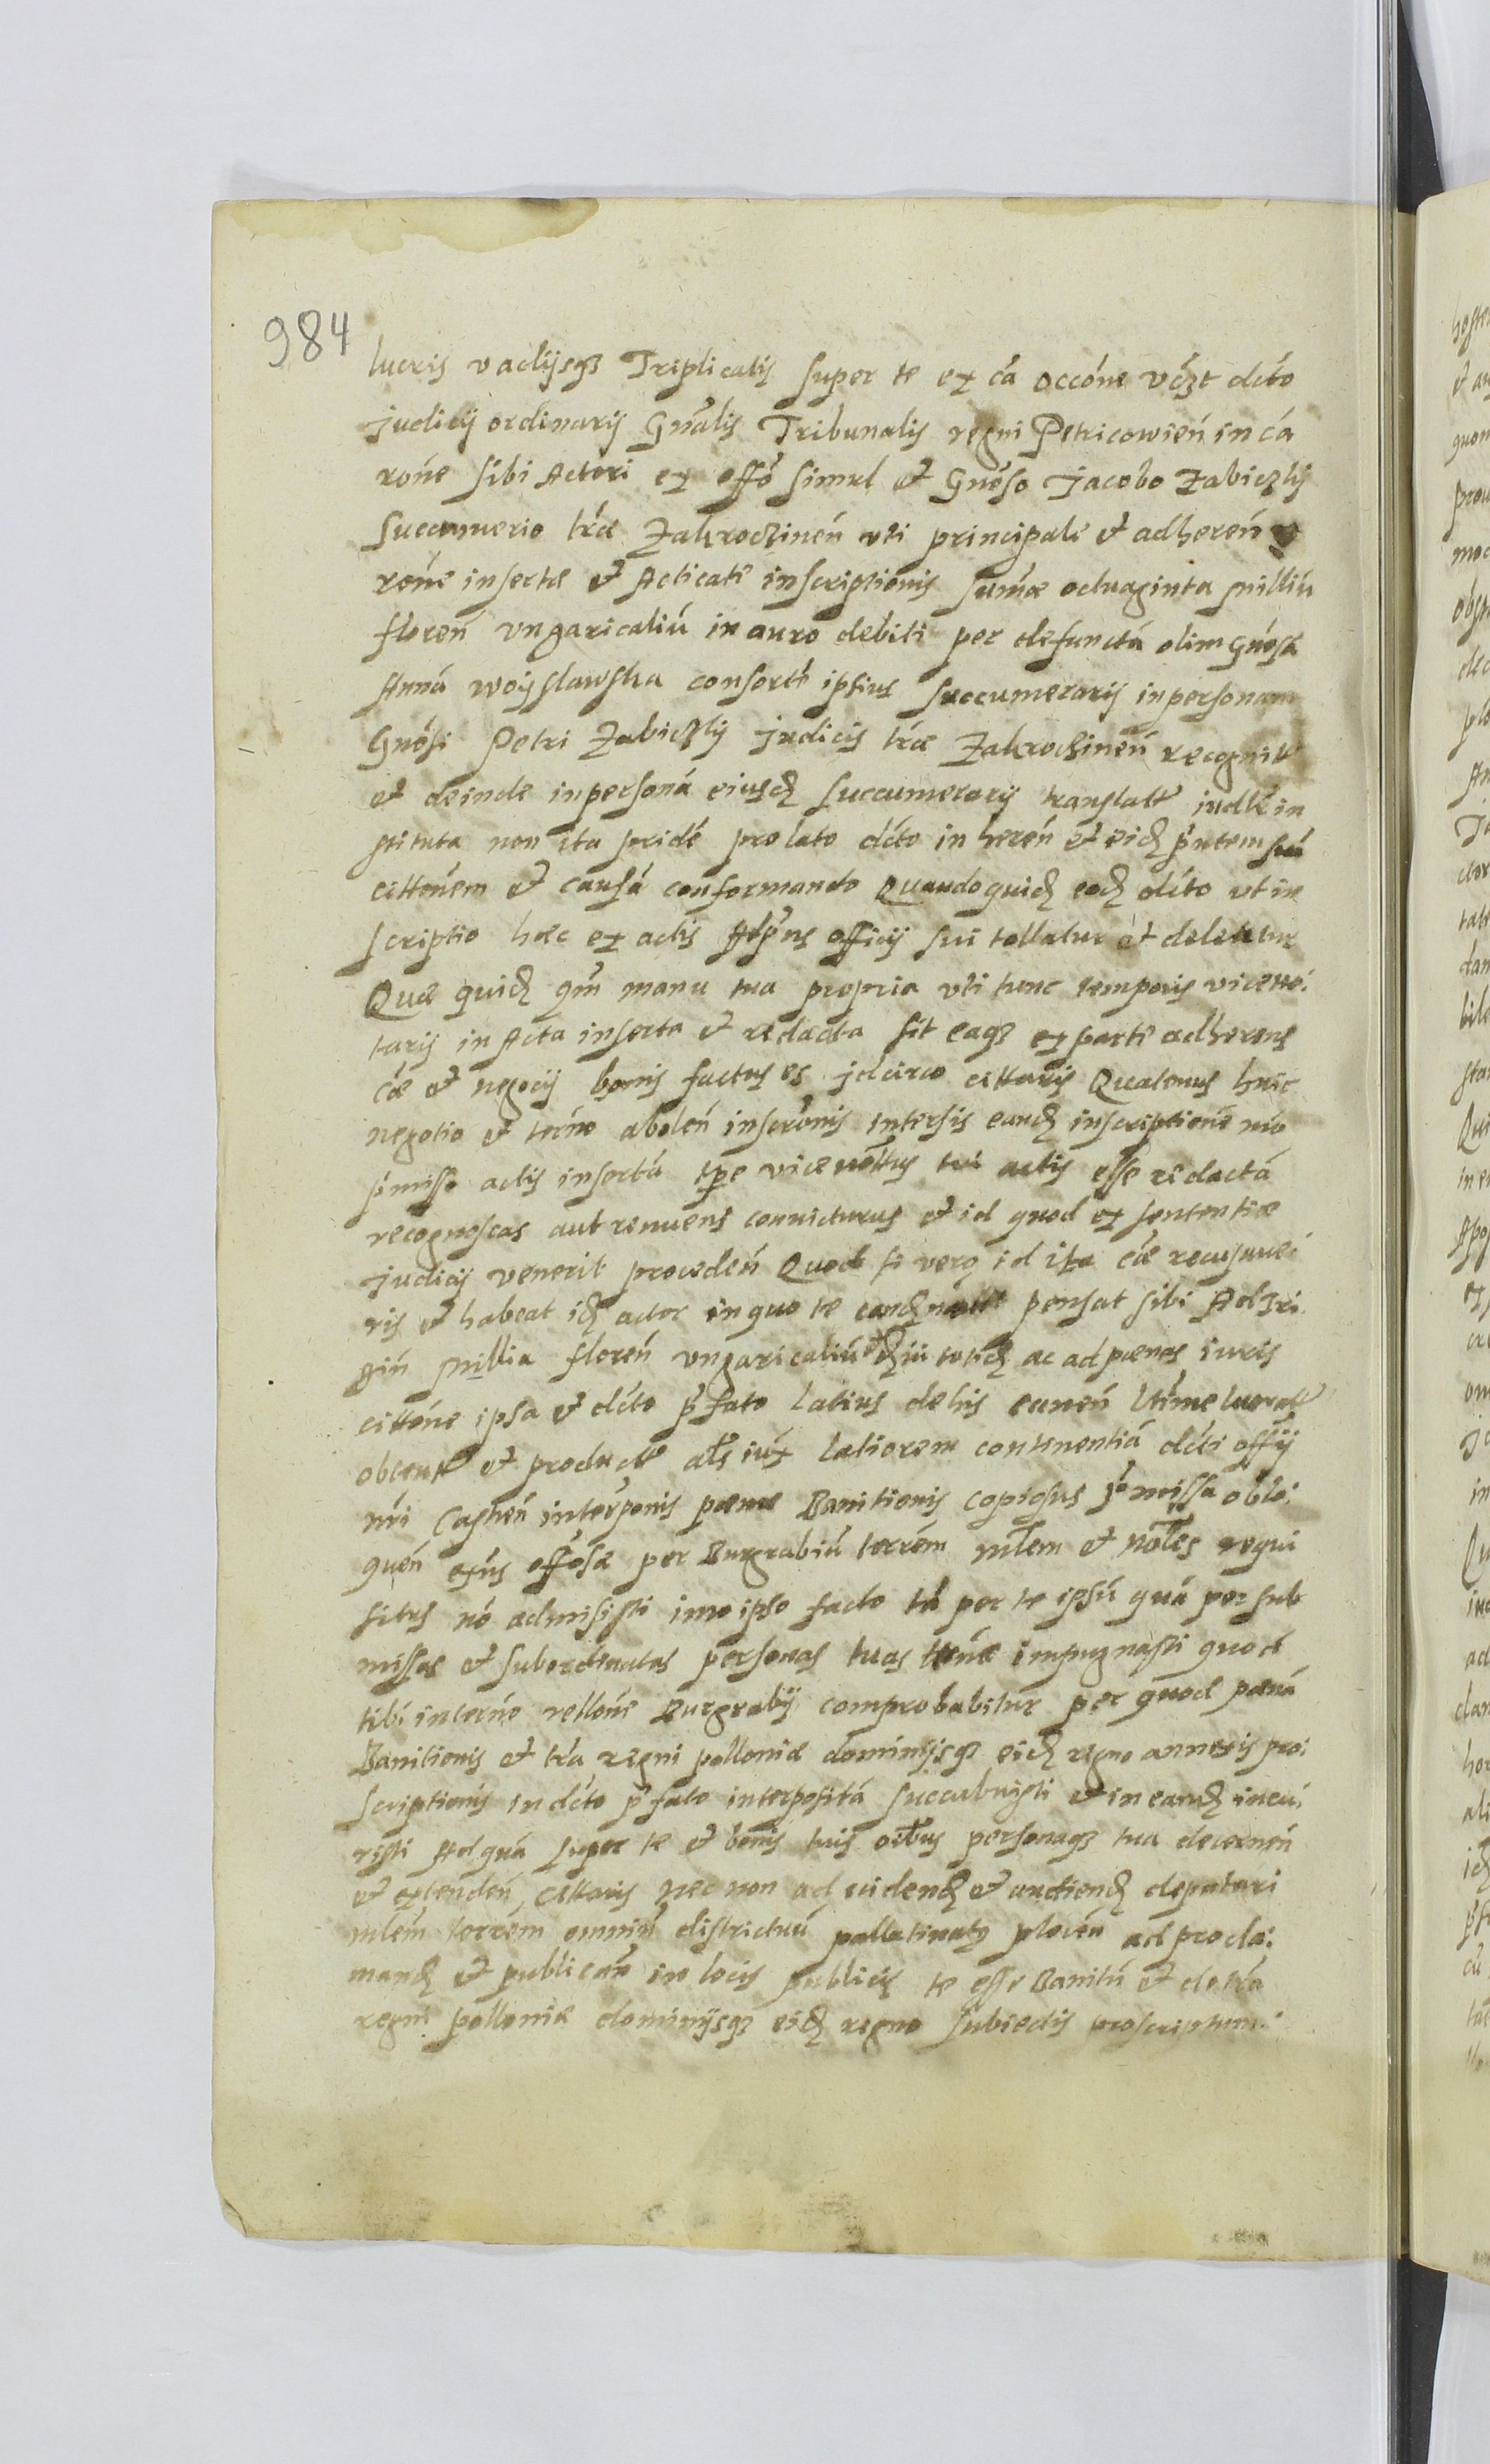 984
lucris vadijsqз Triplicatis super te ex ca occóne vézt dcto
Judicij ordinarij Gnalis Tribunalis regni Petricowień in cá
roñe sibi Actori ex offo simul et Gnoso Jacobo Zabiczky
Succamerio trae Zakroczineń uti principale et adhereń
roñe insertae et Acticate inscriptionis sumae octuaginta milliú
floreń vngaricaliú in auro debiti per defunctá olim Gnosá
Anná woyslawska consorté ipsius Succamerarij in personam
Gnosi Petri Zabiczky Judicis trae Zakroczineń recognitt
et deinde in personá eiusd Succamerarij translatt iudłr in
stituta non ita pridé prolato dcto in hereń et eid pntem suá
cittońem et causá conformando Quandoquid eod dcto ut in
scriptio haec ex actis officij sui tollatur et deleatur
Quae quid qm manu tua propria uti tunc temporis viceno:
tarij in Acta inserta et redacta sit eaqз ex parte adherens
cae et negocij bonis factus es Jdcirco cittaris Quatenus huic
negotio et terno aboleń inscronis intersis eand inscriptione mo
pmisso actis insertá tpe vicenottus tui actis esse redactá
recognoscas aut renuens convicturus et id quod ex sententiae
judicij venerit procedeń Quod si vero id ita cae recusaue:
ris et habeat id actor in quo te pensat sibi Ad Tri
gin millia floreń vngaricaliú totid ac ad paenas iuris
cittone ipsa et dcto pfato latius de his
obtent et product als iux latiorem continentiá dcti offij
nri Casneń interponis paenae Banitionis copiosus pmissa oblo:
queń exns offosae per Burgrabiú terrém mlem et nobles requi
situs nó admisisti imo ipso facto tá per te ipsú quá per sub
missas et subordinatas personas tuas impugnasti quod
tibi in termo rellone Burgrabij comprobabitur per quod paená
Banitionis et tra regni pollonia dominijsqз eid regno annexis pro:
scriptionis in dcto pfato interpositá succubuisti et in eand incu:
risti Ad quá super te et bonis tuis oibus personaqз tua decerneń
et extendeń, cittaris nec non ad videnđ et audienđ deputari
mlem terrém omniú districtuú pallatinatus ploceń ad procla:
manđ et publicań in locis publicis te esse Banitú et de tra
regni pollonia dominijsqз eid regno subiectis proscriptum: